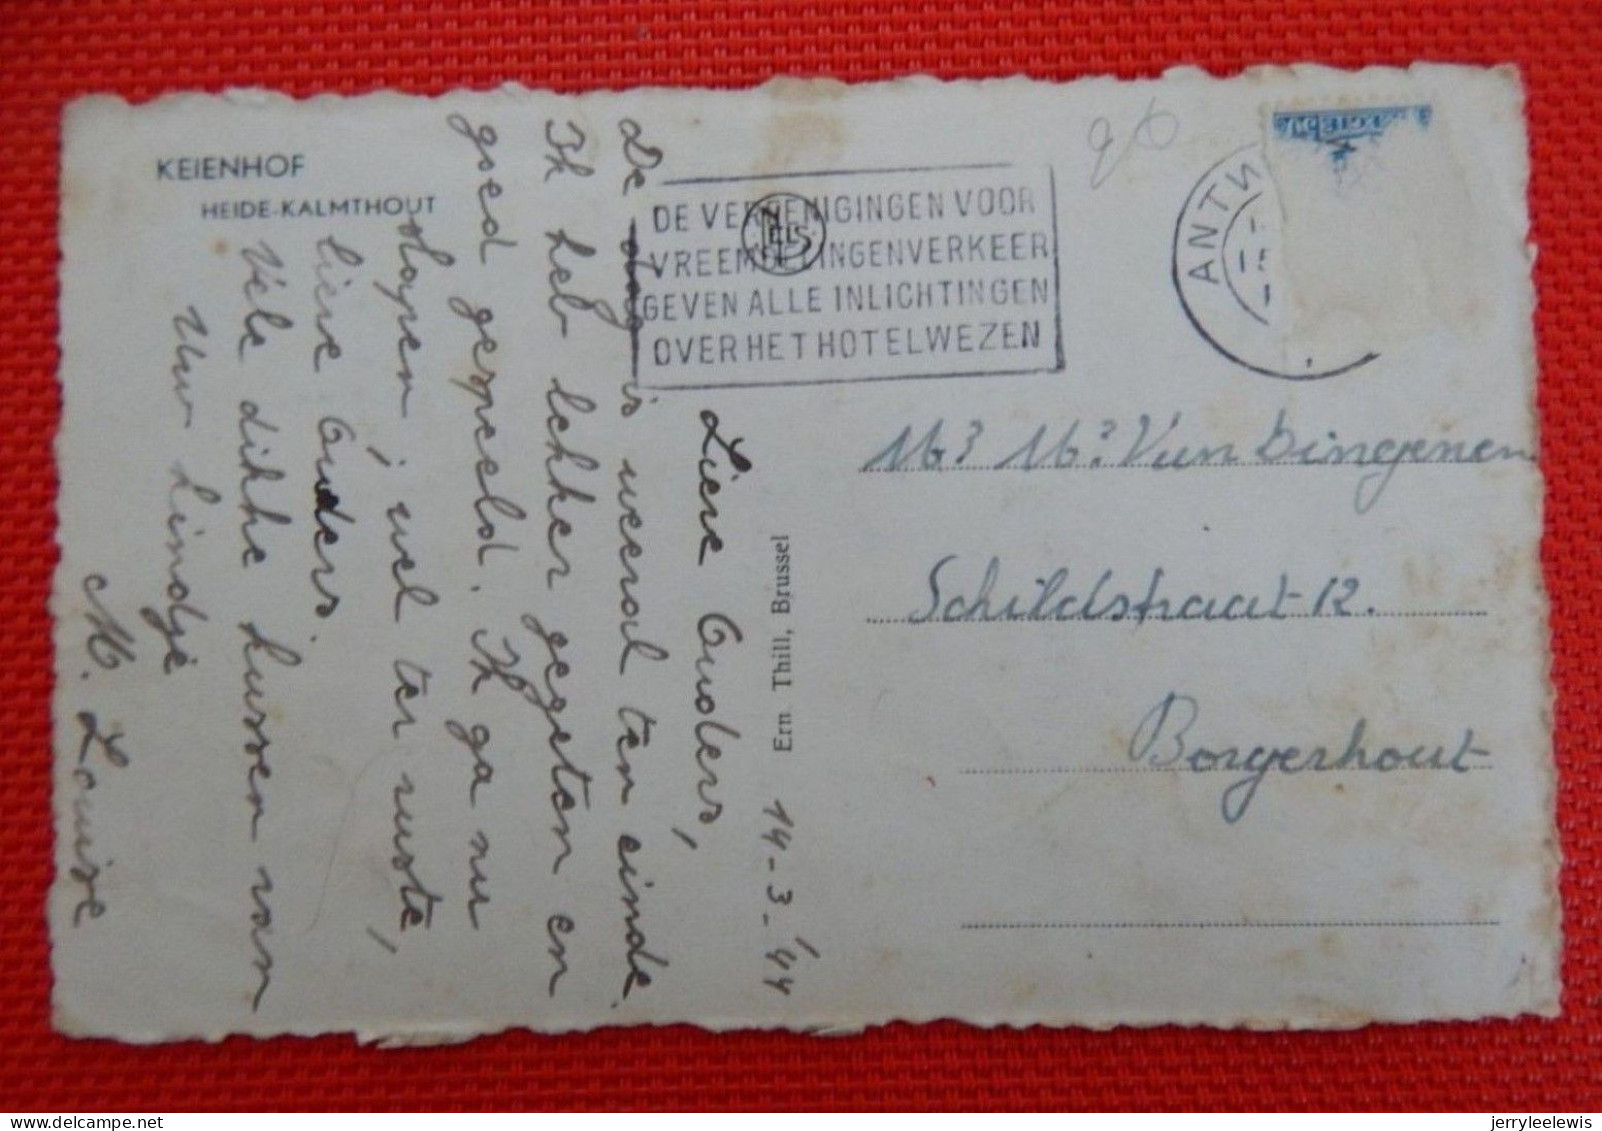 KEIENHOF
HEIDE-KALMTHOUT
14-3-'44
Lieve Ouders,
De dag is weeral ten einde.
Ik heb lekker gegeten en
goed gespeeld. Ik ga nu
slapen; wel ter ruste,
lieve Ouders.
Vele dikke kussen van
Uw kindje
M. Louise
Ern Thill, Brussel
NELS
DE VERENIGINGEN VOOR
VREEMDELINGENVERKEER
GEVEN ALLE INLICHTINGEN
OVER HET HOTELWEZEN
ANTW
Mr Mr Van Dingenen
Schildstraat 12.
Borgerhout
jerryleelewis